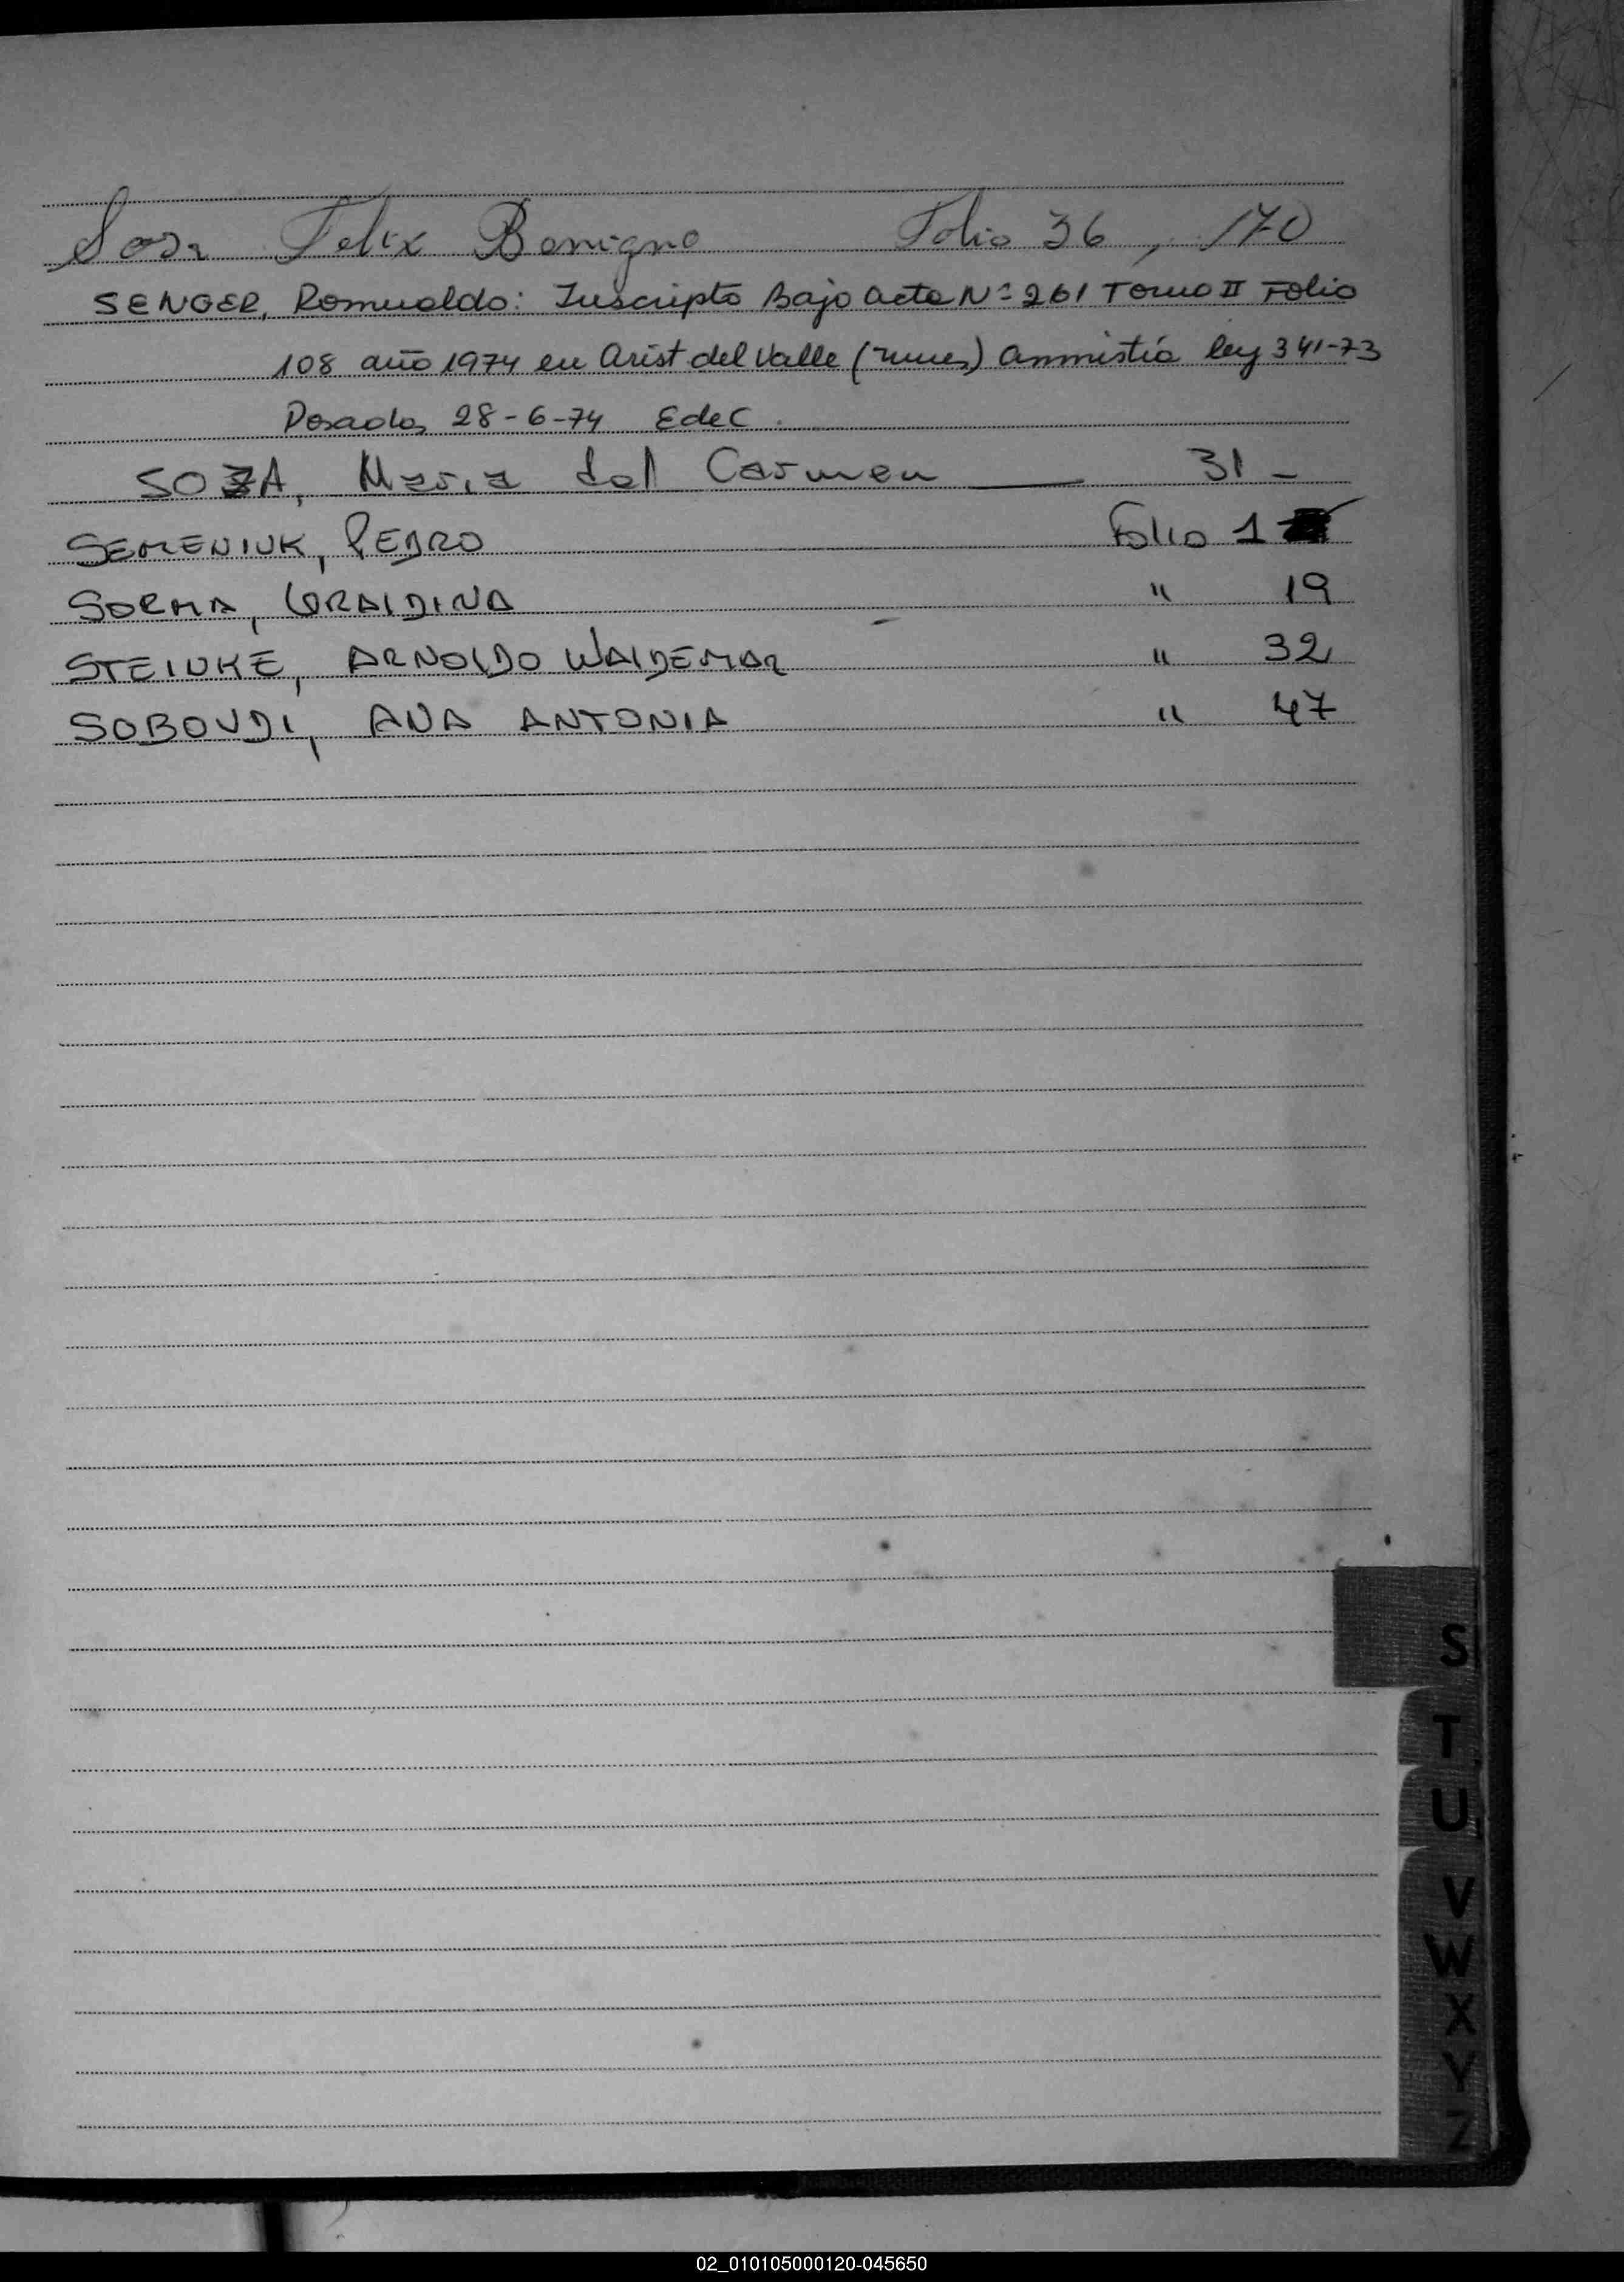 Sosa Felix Benigno Folio 36, 170
SENGER, Romualdo: Inscripto Bajo acta Nº 261 Tomo II Folio
108 año 1974 en Arist del Valle (mnes) amnistía ley 341-73
Posadas, 28-6-74 EdeC.
SOZA, Maria del Carmen — 31 -
SEMENIUK, PEDRO Folio 1
SORMA, GRALDINA " 19
STEINKE, ARNOLDO WALDEMAR " 32
SOBOVDI, ANA ANTONIA " 47
S
T
U
V
W
X
Y
Z
02_010105000120-045650